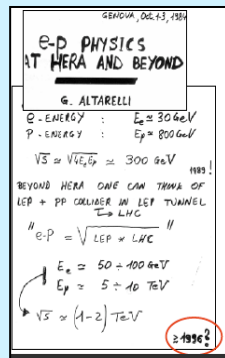 GENOVA, Oct. 1-3, 1984
e-p PHYSICS
AT HERA AND BEYOND
G. ALTARELLI
e-ENERGY : Ee ≃ 30 GeV
P-ENERGY : Ep ≃ 800 GeV
√S ≃ √4EeEp ≃ 300 GeV
1989!
BEYOND HERA ONE CAN THINK OF
LEP + PP COLLIDER IN LEP TUNNEL
↳ LHC
"e-p = √LEP × LHC"
Ee ≃ 50 ÷ 100 GeV
Ep ≃ 5 ÷ 10 TeV
√S ≃ (1-2) TeV
≥ 1996?